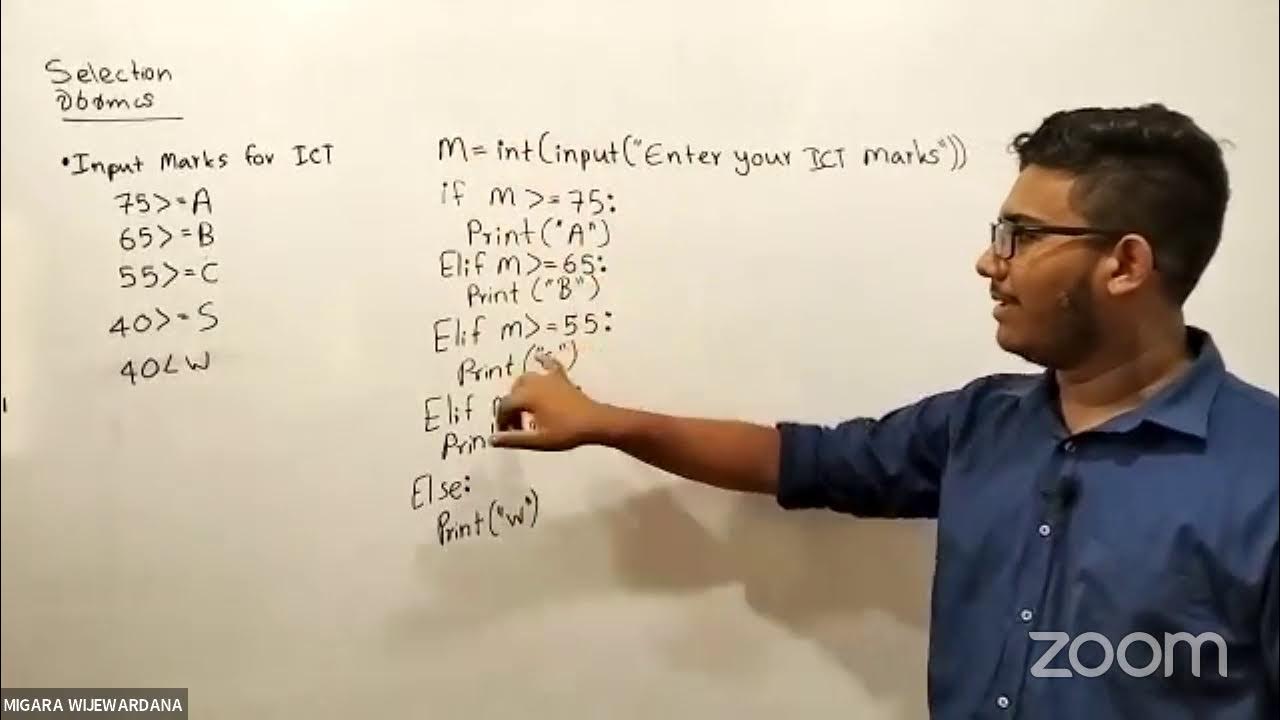 Selection
තේරීම
•Input Marks for ICT
75>=A
65>=B
55>=C
40>=S
40<W
M=int(input("Enter your ICT marks"))
if m>=75:
Print("A")
Elif m>=65:
Print("B")
Elif m>=55:
Print("C")
Elif
Print
Else:
Print("W")
zoom
MIGARA WIJEWARDANA